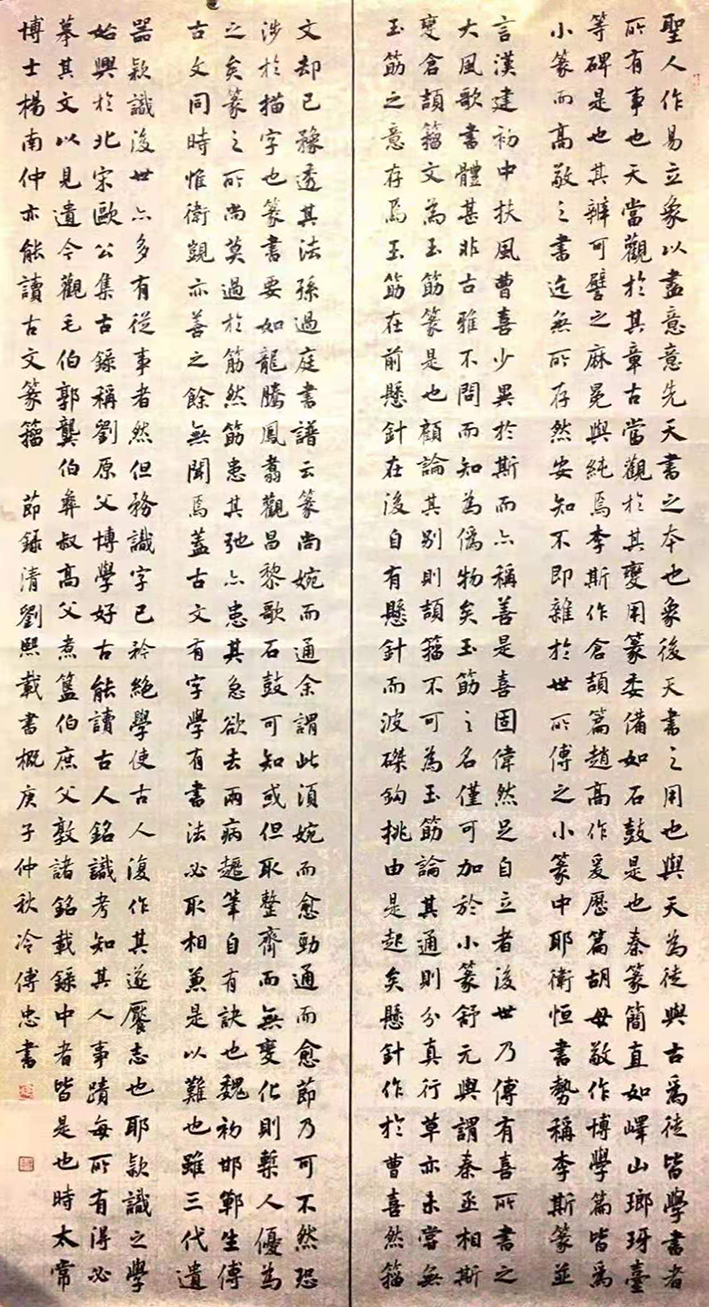 聖人作易立象以盡意意先天書之本也象後天書之用也與天為徒與古為徒皆學書者
所有事也天當觀於其章古當觀於其變用篆委備如石鼓是也秦篆簡直如嶧山瑯玡臺
等碑是也其辨可譬之麻冕與純焉李斯作倉頡篇趙高作爰歷篇胡毋敬作博學篇皆為
小篆而高敬之書迄無所存然安知不即雜於世所傳之小篆中耶衛恒書勢稱李斯篆並
言漢建初中扶風曹喜少異於斯而亦稱善是喜固偉然足自立者後世乃傳有喜所書之
大風歌書體甚非古雅不問而知為偽物矣玉筋之名僅可加於小篆舒元輿謂秦丞相斯
變倉頡籀文為玉筋篆是也顧論其別則頡籀不可為玉筋論其通則分真行草亦未嘗無
玉筋之意存焉玉筋在前懸針在後自有懸針而波磔鉤挑由是起矣懸針作於曹喜然籀
文却已豫透其法孫過庭書譜云篆尚婉而通余謂此須婉而愈勁通而愈節乃可不然恐
涉於描字也篆書要如龍騰鳳翥觀昌黎歌石鼓可知或但取整齊而無變化則槧人優為
之矣篆之所尚莫過於筋然筋患其弛亦患其急欲去兩病趯筆自有訣也魏初邯鄲生傳
古文同時惟衛覬亦善之餘無聞焉蓋古文有字學有書法必取相兼是以難也雖三代遺
器款識後世亦多有從事者然但務識字已矜絕學使古人復作其遂饜志也耶款識之學
始興於北宋歐公集古錄稱劉原父博學好古能讀古人銘識考知其人事蹟每所有得必
摹其文以見遺今觀毛伯郭龔伯彝叔高父煮簋伯庶父敦諸銘載錄中者皆是也時太常
博士楊南仲亦能讀古文篆籀 節錄清劉熙載書概庚子仲秋冷傳忠書